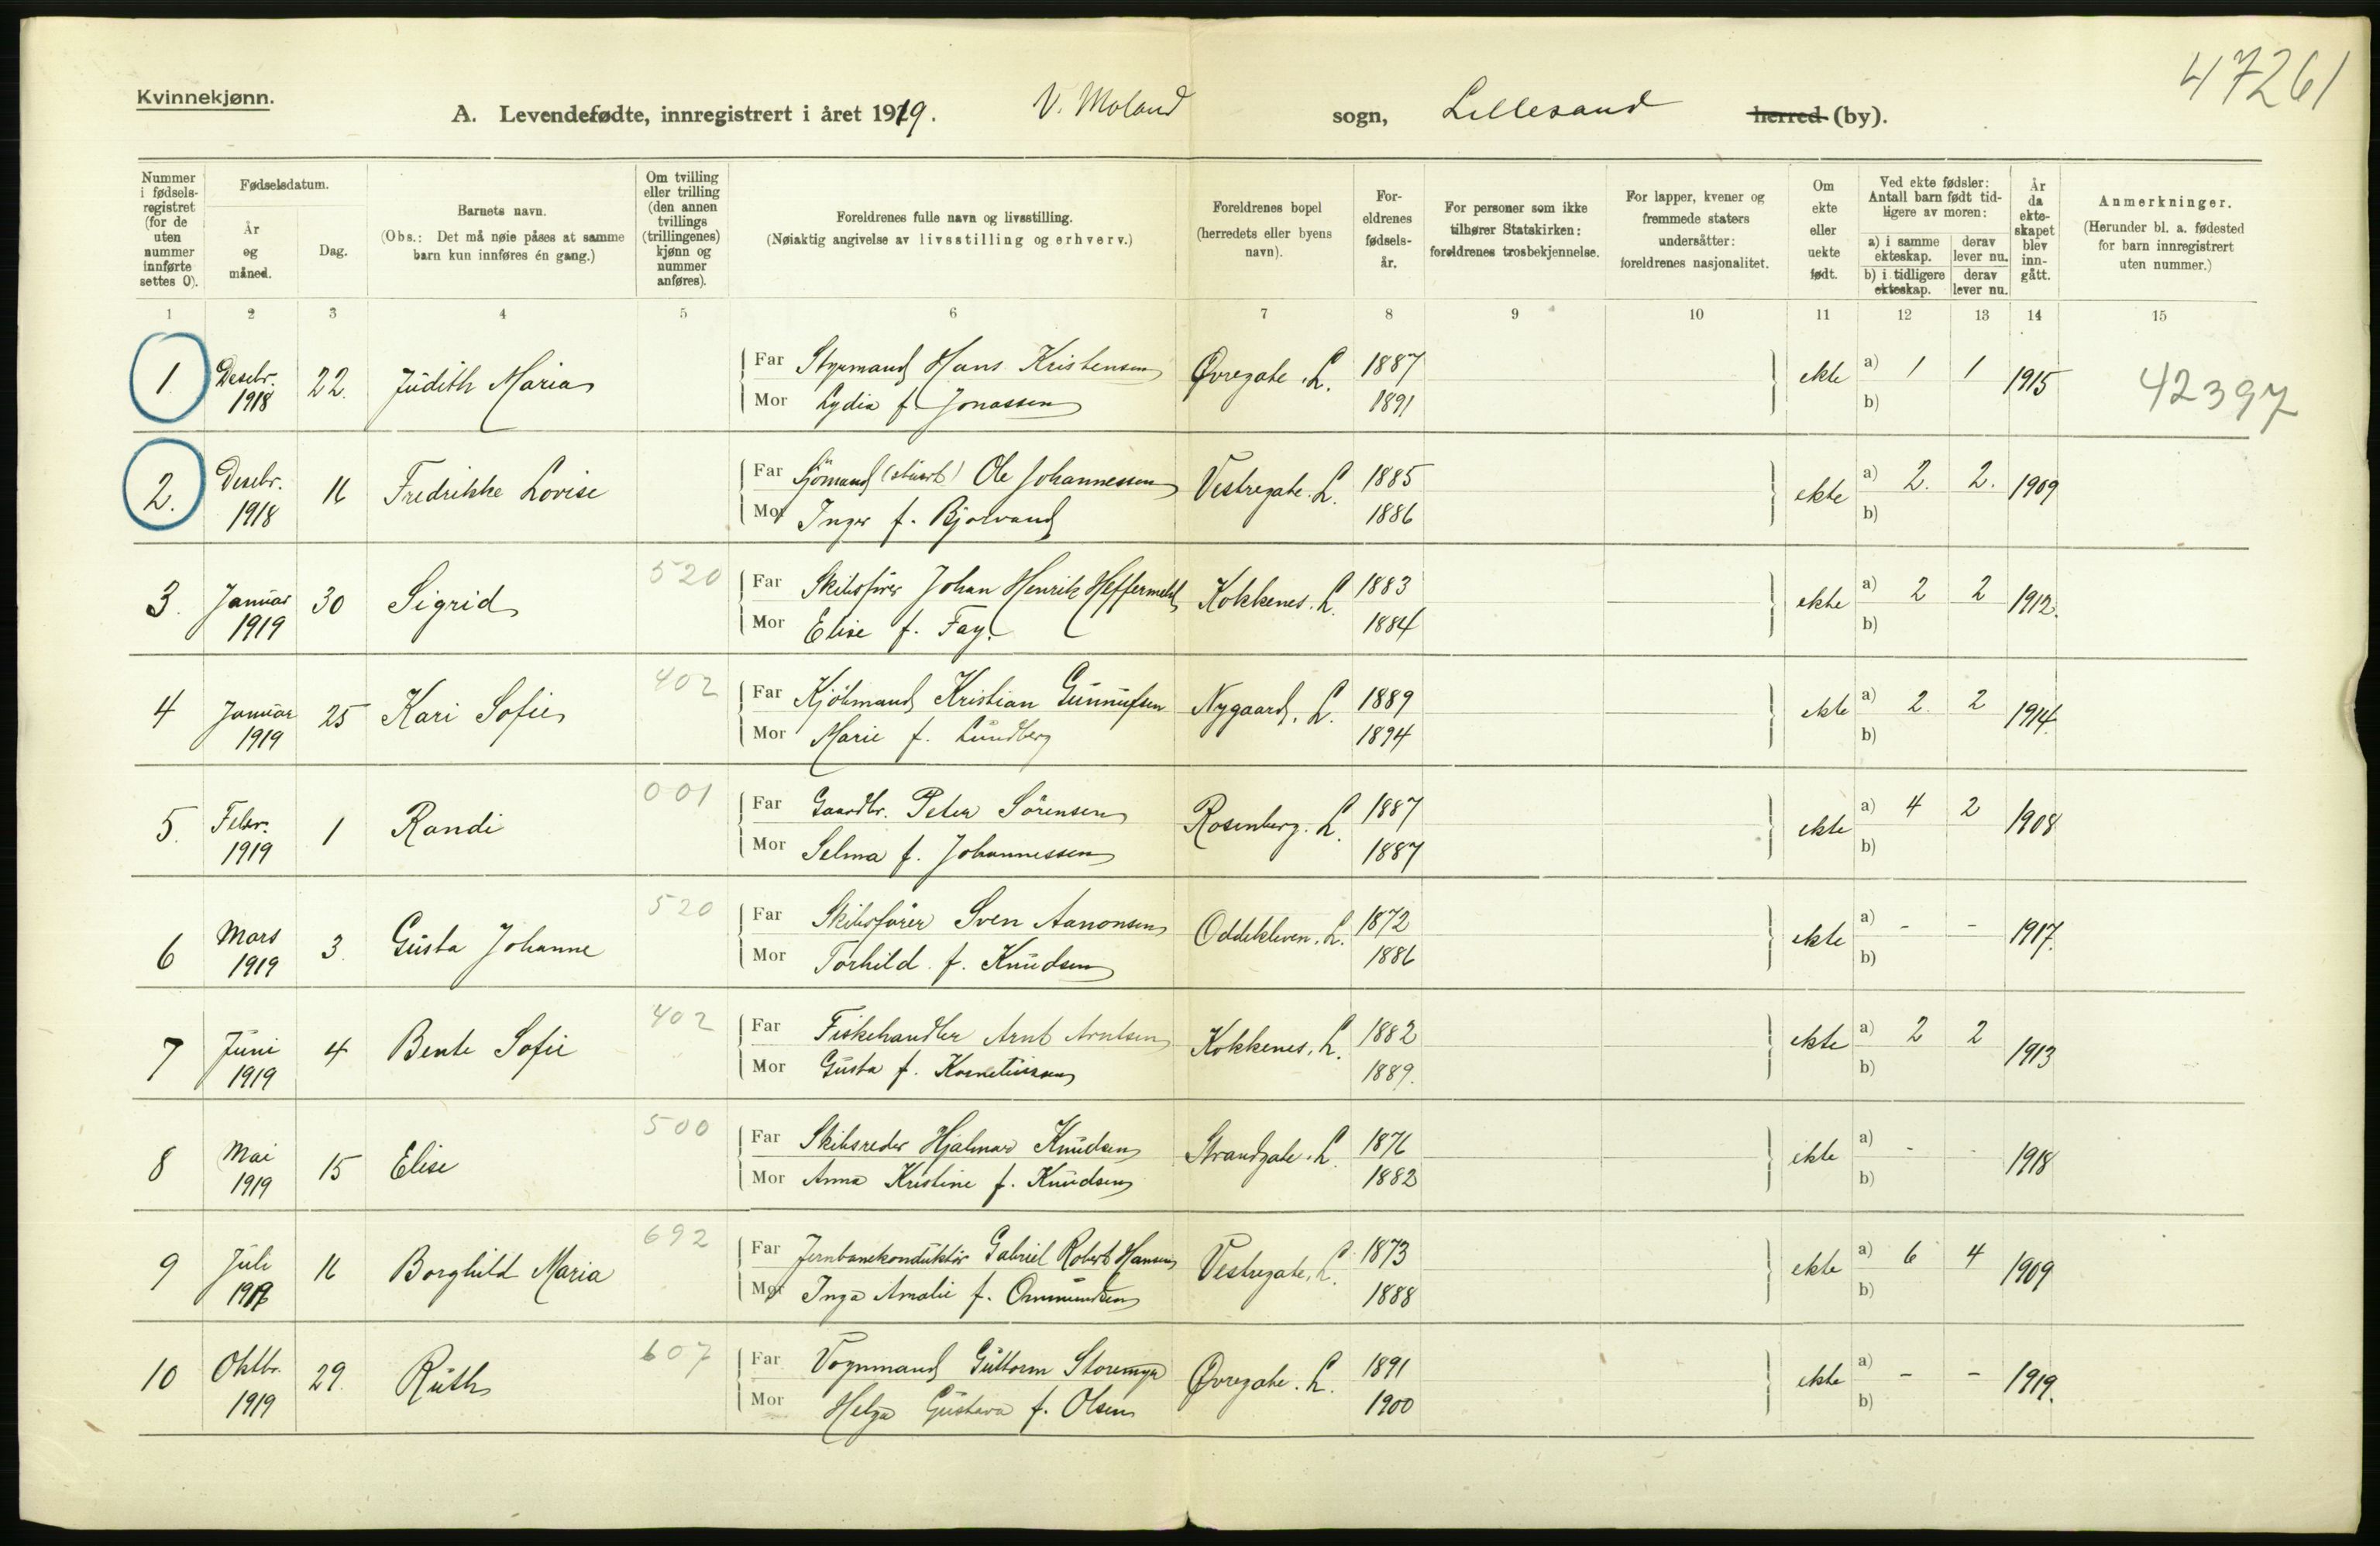 47261
Kvinnekjønn.
A. Levendefødte, innregistrert i året 1919. V. Moland sogn, Lillesand herred (by).
Nummer i fødsels-registret (for de uten nummer innførte settes 0).
Fødselsdatum.
År og måned.
Dag.
Barnets navn.
(Obs.: Det må nøie påses at samme barn kun innføres én gang.)
Om tvilling eller trilling (den annen tvillings (trillingenes) kjønn og nummer anføres).
Foreldrenes fulle navn og livsstilling.
(Nøiaktig angivelse av livsstilling og erhverv.)
Foreldrenes bopel (herredets eller byens navn).
For-eldrenes fødsels-år.
For personer som ikke tilhører Statskirken: foreldrenes trosbekjennelse.
For lapper, kvener og fremmede staters undersåtter: foreldrenes nasjonalitet.
Om ekte eller uekte født.
Ved ekte fødsler: Antall barn født tid-ligere av moren:
a) i samme ekteskap. derav lever nu.
b) i tidligere ekteskap. derav lever nu.
År da ekte-skapet blev inn-gått.
Anmerkninger.
(Herunder bl. a. fødested for barn innregistrert uten nummer.)
1 2 3 4 5 6 7 8 9 10 11 12 13 14 15
1. Desebr. 1918 22. Judith Maria Far Styrmand Hans Kristensen Øvregate. L. 1887 ekte a) 1 1 1915 42397
Mor Lydia f. Jonassen 1891 b)
2. Desebr. 1918 16 Fredrikke Lovise Far Sjömand (stuert) Ole Johannessen Vestregate. L. 1885 ekte a) 2. 2. 1909
Mor Inger f. Bjelvand 1886 b)
3. Januar 1919 30 Sigrid 520 Far Skibsfører Johan Henrik Heffermehl Kokkenes. L. 1883 ekte a) 2 2 1912.
Mor Elise f. Fay. 1884 b)
4 Januar 1919 25 Kari Sofie 402 Far Kjöbmand Kristian Gunnufsen Nygaard. L. 1889 ekte a) 2. 2 1914.
Mor Marie f. Lundberg 1894 b)
5. Febr. 1919 1 Randi 001 Far Gaardbr. Peter Sörensen Rosenberg. L. 1887 ekte a) 4 2 1908
Mor Selma f. Johannessen 1887 b)
6 Mars 1919 3. Gusta Johanne 520 Far Skibsfører Sven Aanonsen Oddekleven. L. 1872 ekte a) - - 1917.
Mor Torhild f. Knudsen 1886 b)
7 Juni 1919 4 Bente Sofie 402 Far Fiskehandler Arnt Arntsen Kokkenes. L. 1882 ekte a) 2 2 1913
Mor Gusta f. Korneliussen 1889. b)
8 Mai 1919 15 Elise 500 Far Skibsreder Hjalmar Knudsen Strandgate. L. 1876 ekte a) - - 1918
Mor Anna Kristine f. Knudsen 1882 b)
9 Juli 1919 16 Borghild Maria 692 Far Jernbanekonduktör Gabriel Robert Hansen Vestregate. L. 1873 ekte a) 6 4 1909
Mor Inga Amalie f. Ommundsen 1888 b)
10 Oktbr. 1919 29. Ruth 607 Far Vognmand Guttorm Storemyr Øvregate. L. 1891 ekte a) - - 1919.
Mor Helga Gustava f. Olsen 1900 b)